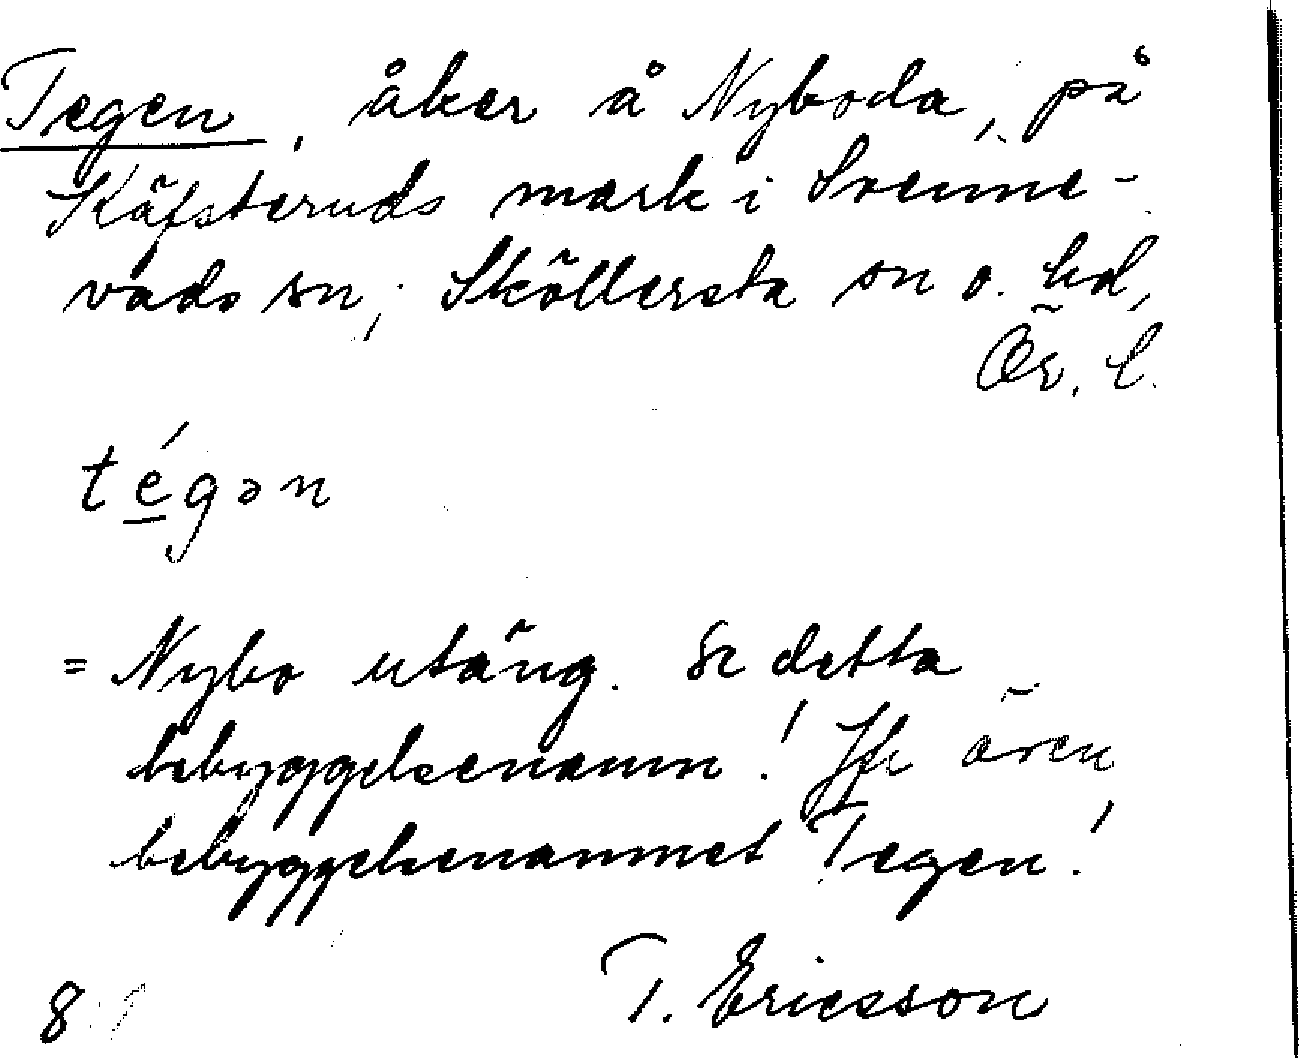 Tegen, åker å Nyboda, på
Käfsteruds mark i Svenne-
vads sn; Sköllersta sn o. hd,
Ör. l.
tégən
= Nybo utäng. Se detta
bebyggelsenamn! Jfr även
bebyggelsenamnet Tegen!
T. Ericsson
8